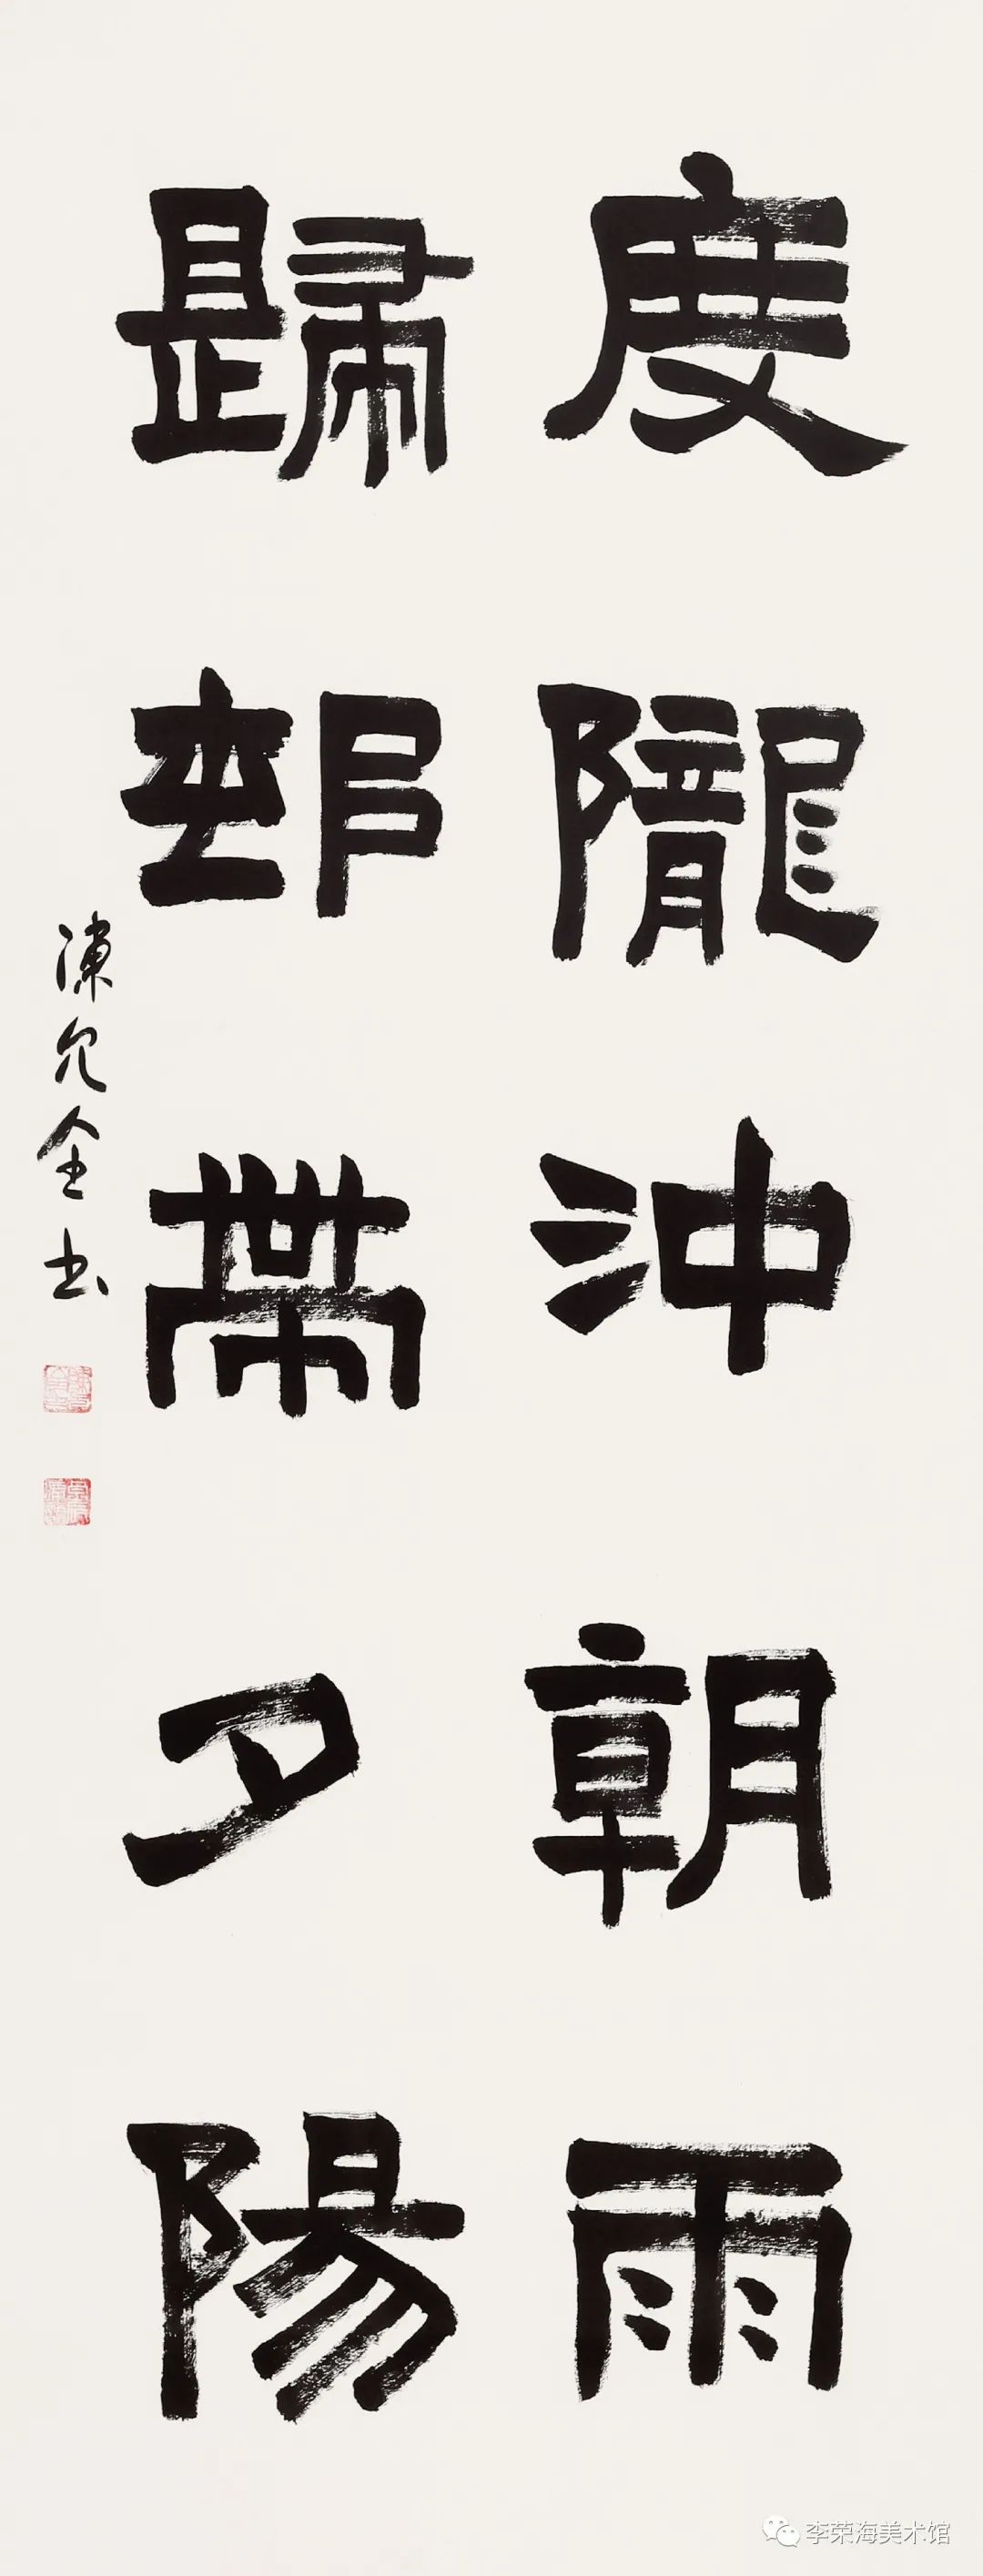 度隴沖朝雨
歸邨帶夕陽
陳允全书
李荣海美术馆